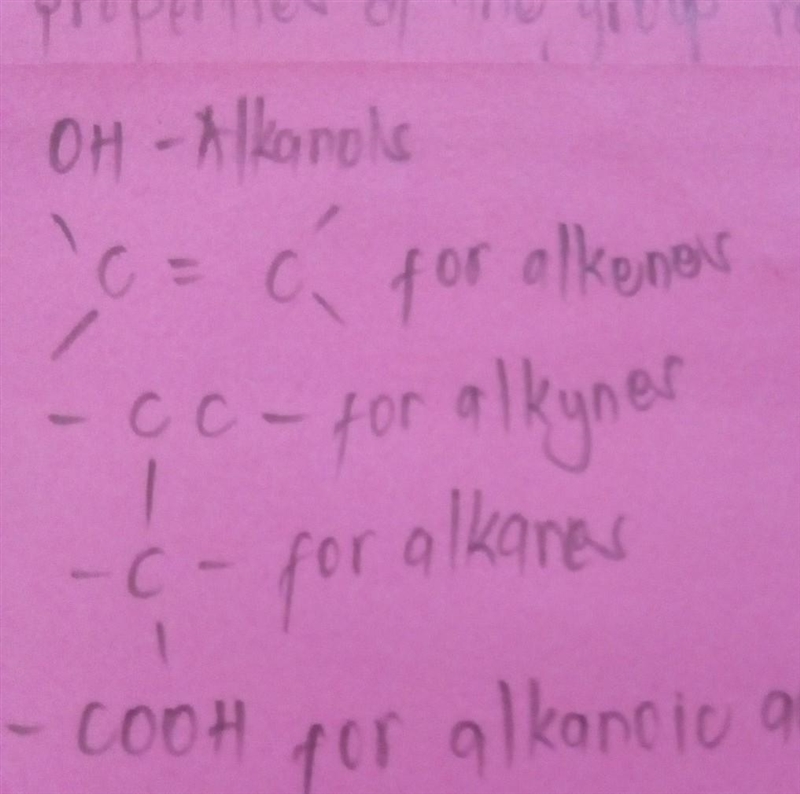 properties of the group
OH - Alkanols
C = C for alkenes
- C C - for alkynes
- C - for alkanes
- COOH for alkanoic a